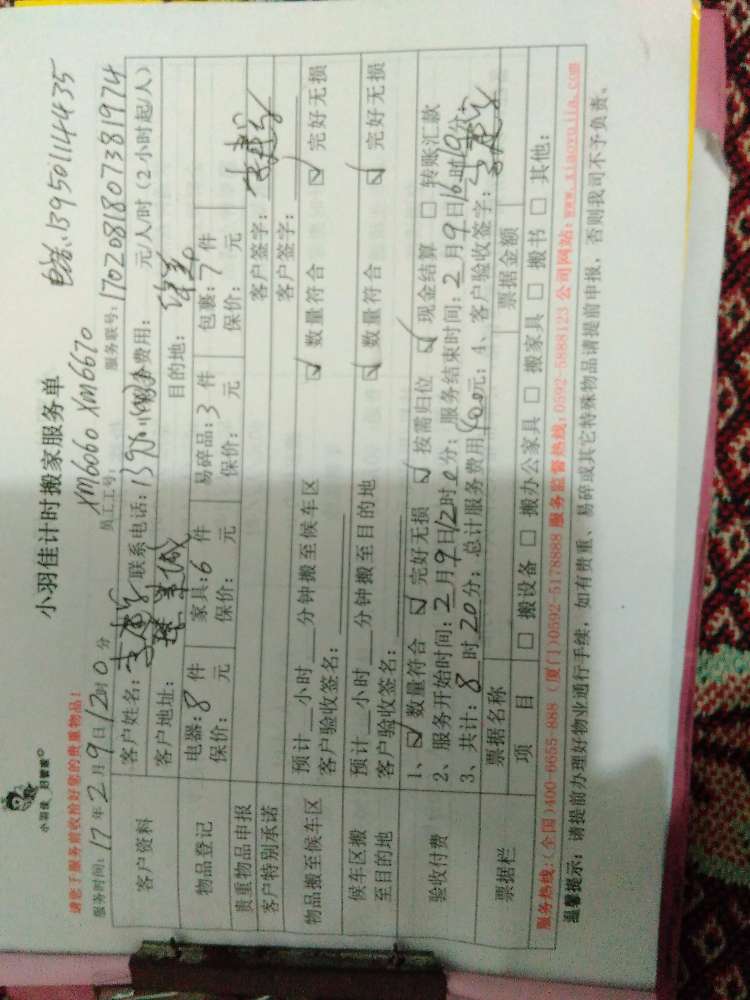 小羽佳 好管家
小羽佳计时搬家服务单
电话:13950114435
请您于服务前收拾好您的贵重物品!
XM6060 XM6670
服务时间: 17 年 2 月 9 日 12 时 0 分 员工工号: 服务联号: 170208180738 1974
客户资料
客户姓名: 联系电话: 费用: 元/人/时(2小时起/人)
客户地址: 目的地:
物品登记
电器: 8 件 家具: 6 件 易碎品: 3 件 包裹: 7 件
贵重物品申报 保价: 元 保价: 元 保价: 元 保价: 元
客户特别承诺 客户签字:
客户签字:
物品搬至候车区
预计__小时__分钟搬至候车区 ☑ 数量符合 ☑ 完好无损
客户验收签名:
候车区搬至目的地
预计__小时__分钟搬至目的地 ☑ 数量符合 ☑ 完好无损
客户验收签名:
验收付费
1、☑ 数量符合 ☑ 完好无损 ☑ 按需归位 ☑ 现金结算 □ 转账汇款
2、服务开始时间: 2 月 9 日 12 时 0 分; 服务结束时间: 2 月 9 日 16 时 19 分
3、共计: 8 时 20 分; 总计服务费用 元; 4、客户验收签字:
票据栏
票据名称 票据金额
项 目 □ 搬设备 □ 搬办公家具 □ 搬家具 □ 搬书 □ 其他:
服务热线:(全国)400-6655-888 (厦门)0592-5178888 服务监督热线:0592-5888123 公司网站:www.xiaoyujia.com
温馨提示: 请提前办理好物业通行手续, 如有贵重、易碎或其它特殊物品请提前申报, 否则我司不予负责。